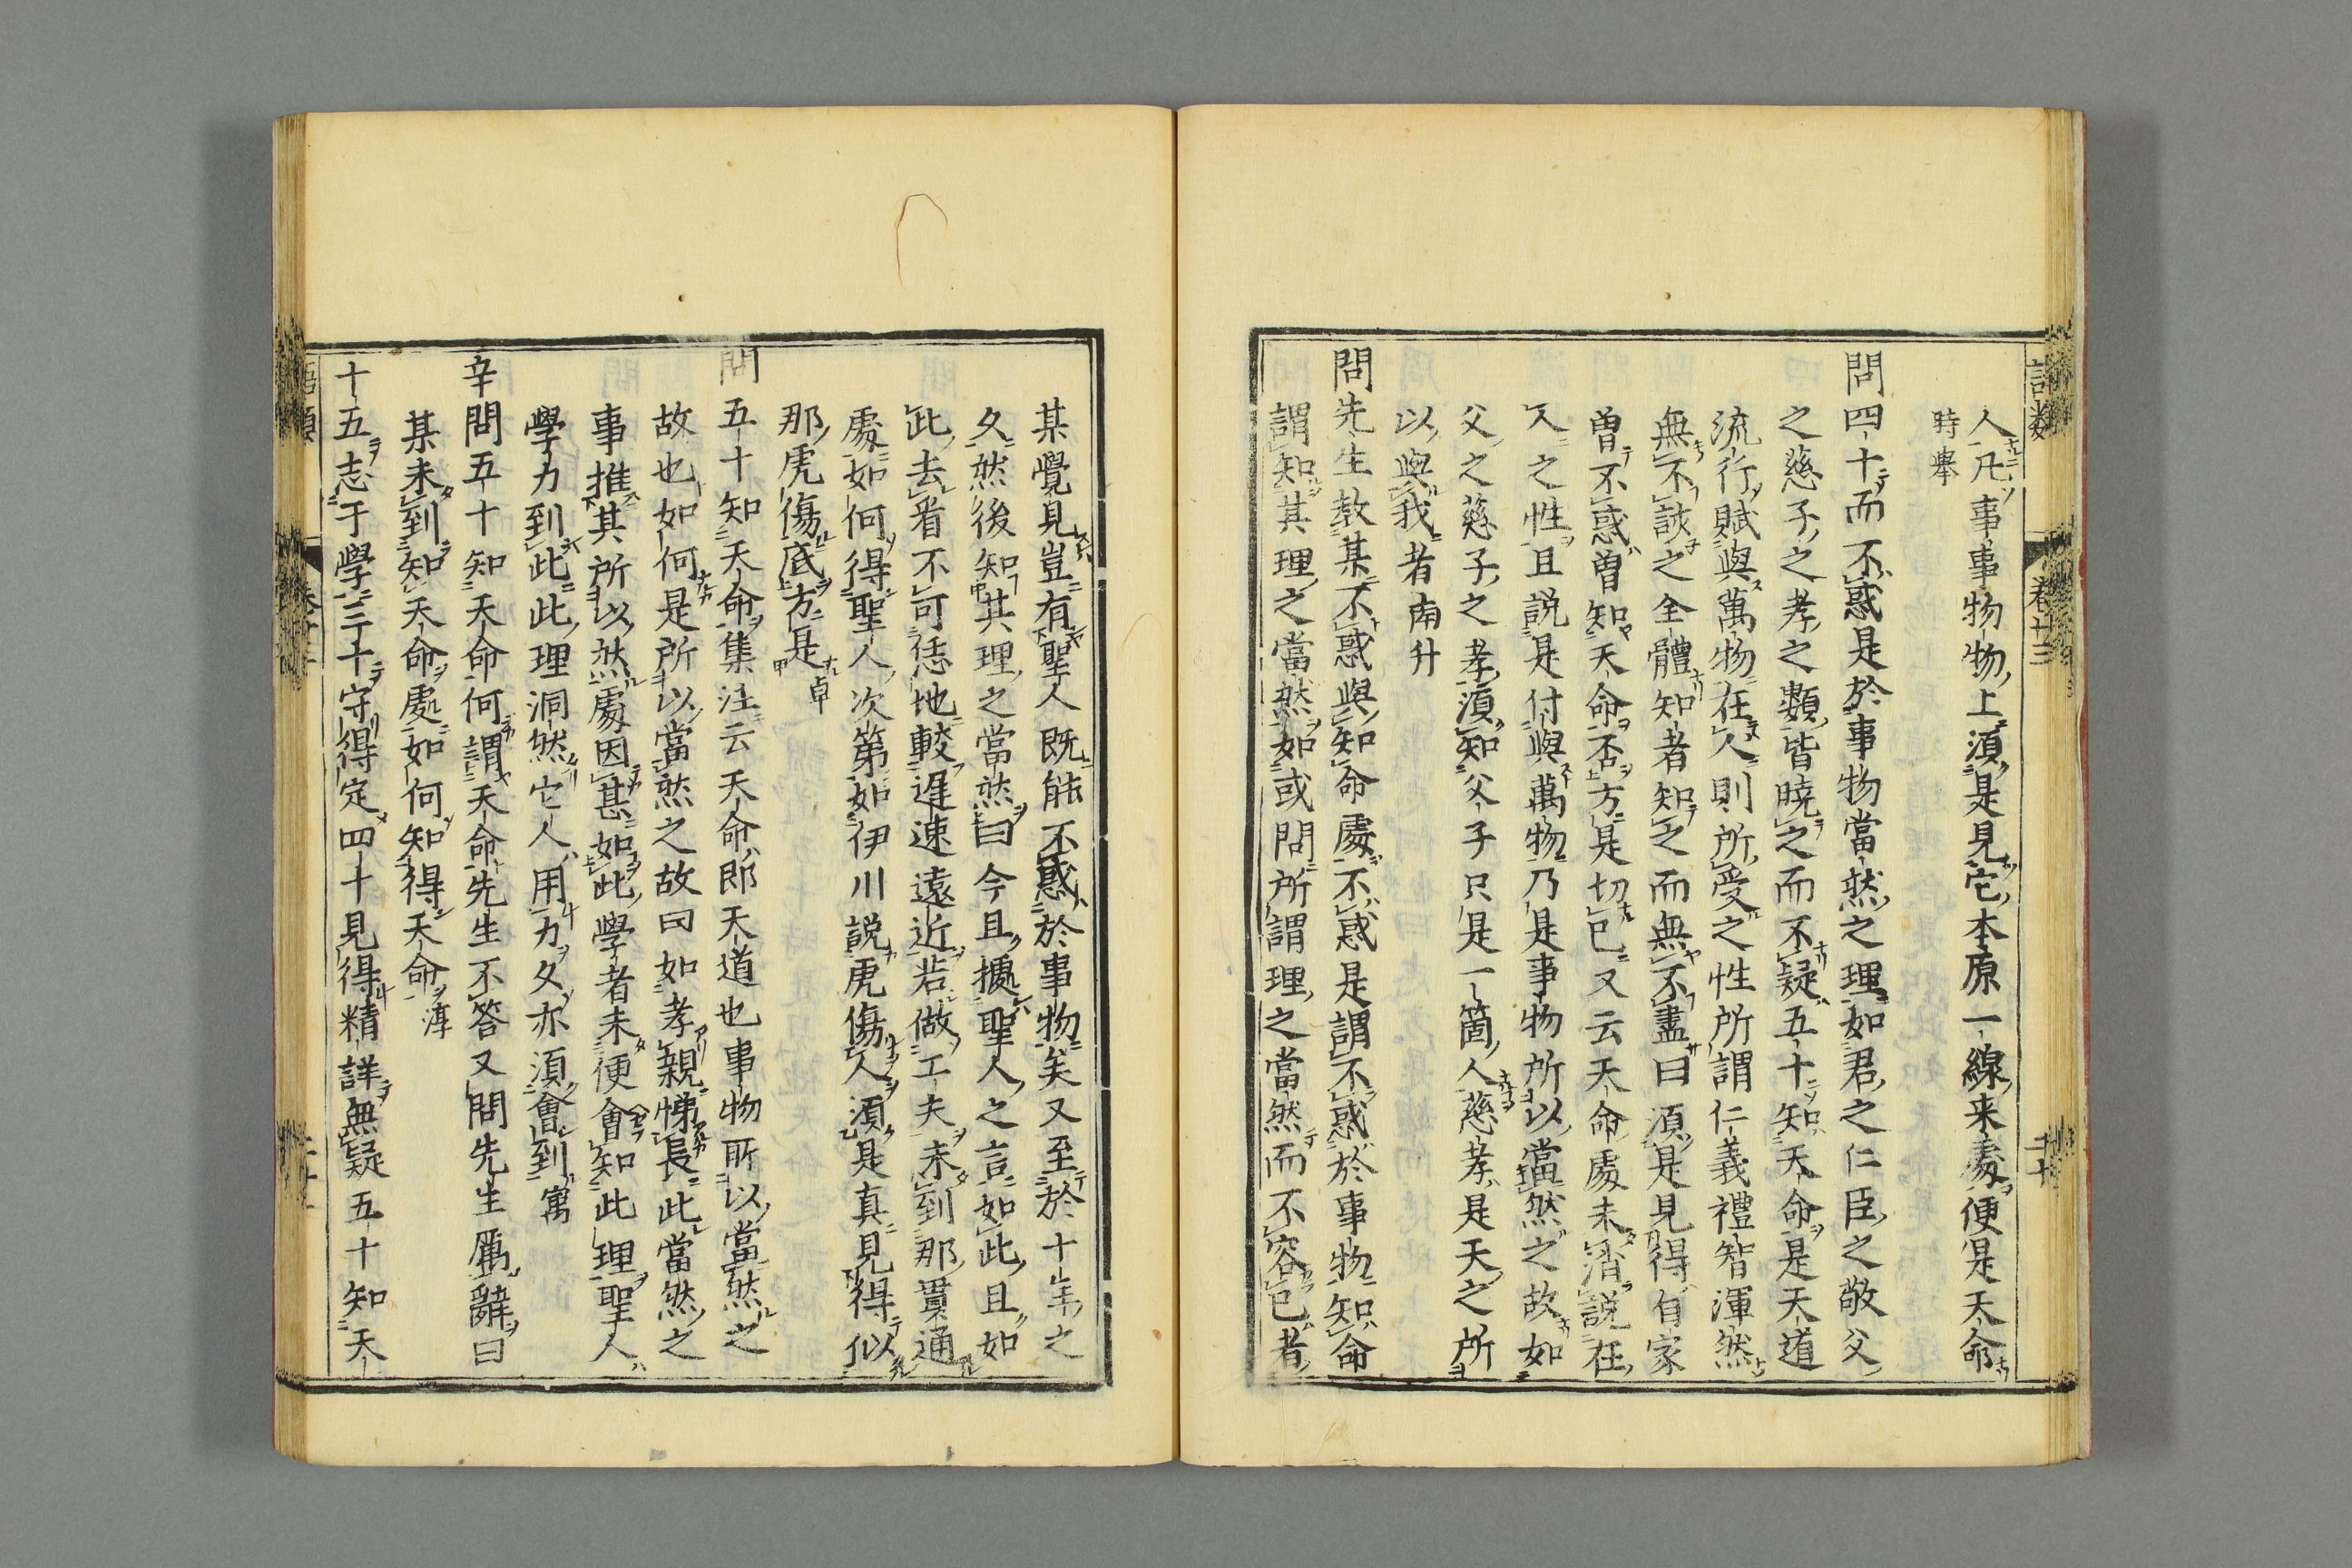 語類 卷廿三 二十
人凡事事物物上須是見它本原一線来處便是天命
時舉
問四十而不惑是於事物當然之理如君之仁臣之敬父
之慈子之孝之類皆曉之而不疑五十知天命是天道
流行賦與萬物在人則所受之性所謂仁義禮智渾然
無不該之全體知者知之而無不盡曰須是見得自家
曾不惑曾知天命否方是切已又云天命處未消說在
人之性且說是付與萬物乃是事物所以當然之故如
父之慈子之孝須知父子只是一箇人慈孝是天之所
以與我者南升
問先生教某不惑與知命處不惑是謂不惑於事物知命
謂知其理之當然如或問所謂理之當然而不容已者
某覺見豈有聖人既能不惑於事物矣又至於十年之
久然後知其理之當然曰今且據聖人之言如此且如
此去看不可恁地較遲速遠近若做工夫未到那貫通
處如何得聖人次第如伊川說虎傷人須是真見得似
那虎傷底方是卓
問五十知天命集注云天命即天道也事物所以當然之
故也如何是所以當然之故曰如孝親悌長此當然之
事推其所以然處因甚如此學者未便會知此理聖人
學力到此此理洞然它人用力久亦須會到寓
辛問五十知天命何謂天命先生不答又問先生厲辭曰
某未到知天命處如何知得天命淳
十五志于學三十守得定四十見得精詳無疑五十知天